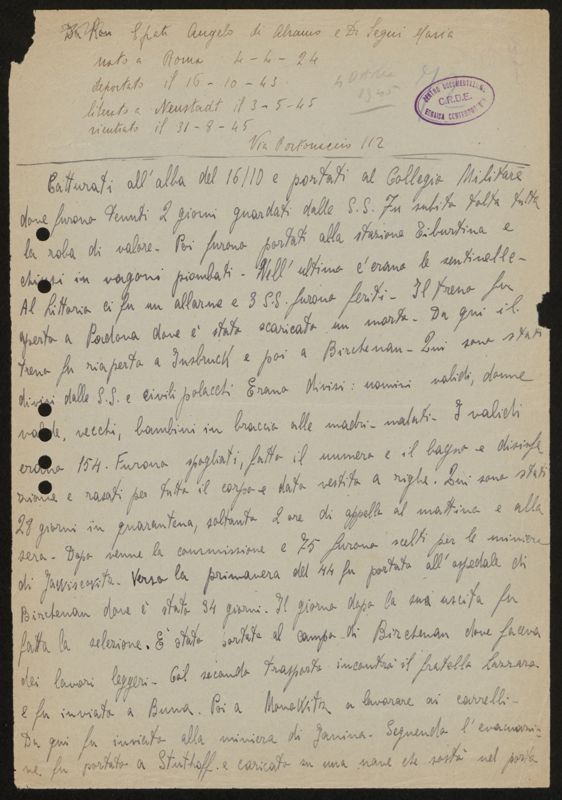 Spati Angelo di Abramo e Di Segni Maria
nato a Roma 4-4-24
deportato il 16-10-43
liberato a Neustadt il 3-5-45
rientrato il 31-8-45
4 Ottobre
1945
CENTRO DOCUMENTAZIONE
C.R.D.E.
EBRAICA CONTEMPORANEA
Via Portonaccio 112
Catturati all'alba del 16/10 e portati al Collegio Militare
dove furono tenuti 2 giorni guardati dalle S.S. Fu subito tolta tutta
la roba di valore - Poi furono portati alla stazione Tiburtina e
chiusi in vagoni piombati - Nell'ultimo c'erano le sentinelle -
Al Littorio ci fu un allarme e 3 S.S. furono feriti - Il treno fu
aperto a Padova dove è stato scaricato un morto - Da qui il
treno fu riaperto a Insbruck e poi a Birchenau - Quì sono stati
divisi dalle S.S. e civili polacchi Erano divisi: uomini validi, donne
valide, vecchi, bambini in braccia alle madri - malati - I validi
erano 154. Furono spogliati, fatto il numero e il bagno e disinfe
zione e rasati per tutto il corpo e dato vestito a righe. Quì sono stati
28 giorni in quarantena, soltanto 2 ore di appello al mattino e alla
sera - Dopo venne la commissione e 75 furono scelti per le miniere
di - Verso la primavera del 44 fu portato all'ospedale di
Birchenau dove è stato 34 giorni - Il giorno dopo la sua uscita fu
fatta la selezione. E' stato portato al campo di Birchenau dove faceva
dei lavori leggeri - Col secondo trasporto incontrò il fratello Lazzaro
e fu inviato a Buna. Poi a Monowitz a lavorare ai carrelli -
Da qui fu inviato alla miniera di Janina - Seguendo l'evacuazio-
ne fu portato a Stuthoff e caricato su una nave che sostò nel porto